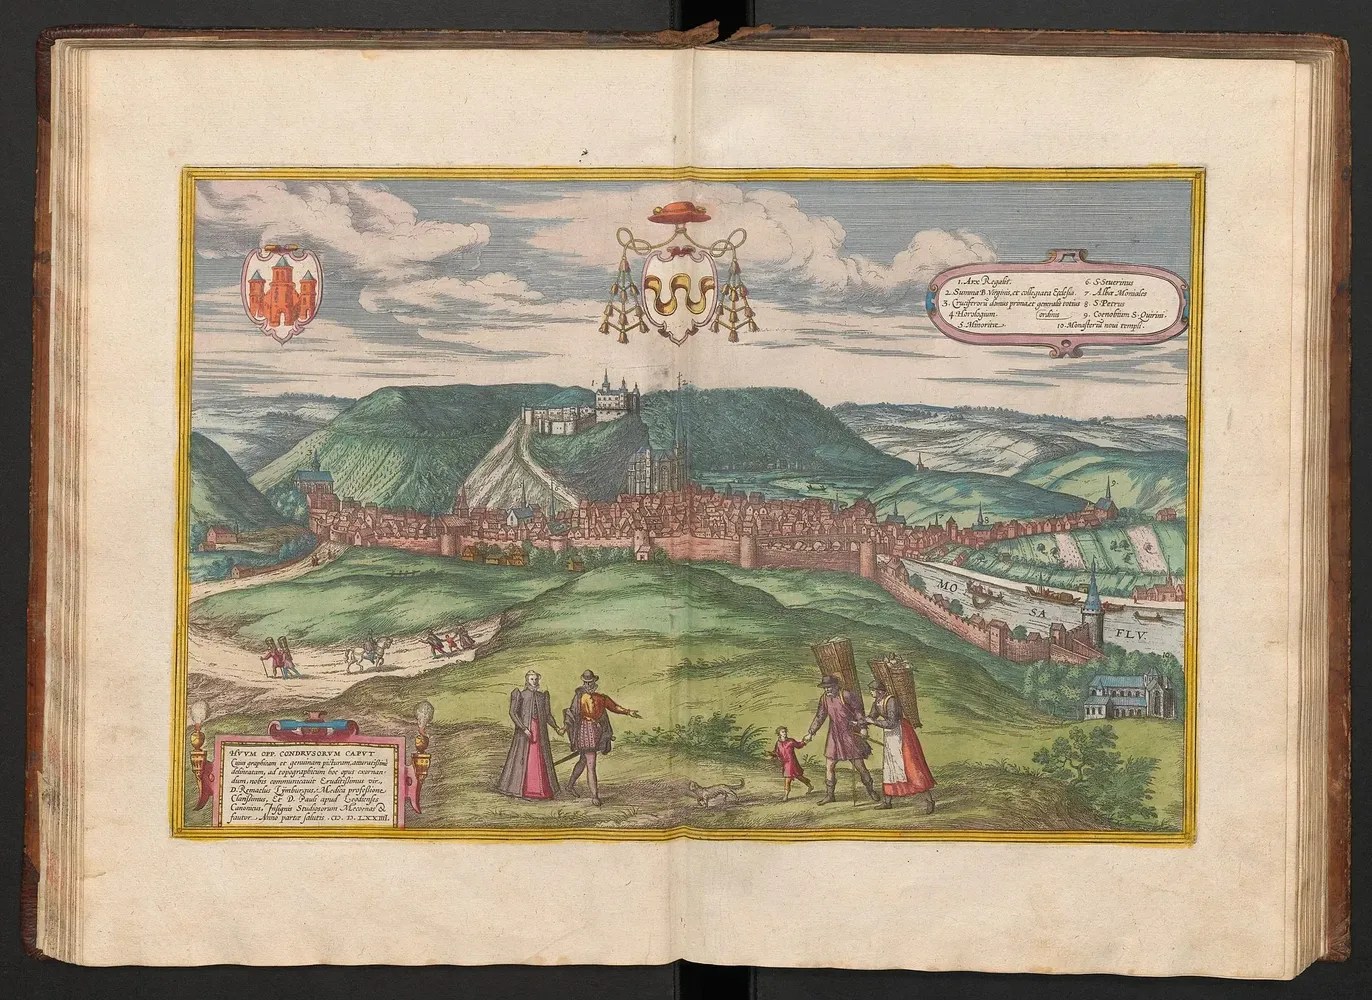 1. Arx Regalis.
2. Summa B. Virginis, et collegiata Ecclesia.
3. Cruciferorũ domus prima, et generalis totius
ordinis
4. Horologium.
5. Minoritæ.
6. S. Severinus
7. Albæ Moniales
8. S. Petrus
9. Coenobium S. Quirini.
10. Monasteriũ novi templi.
9.
8
MO
SA
FLV.
10
HVVM OPP. CONDRVSORVM CAPVT
Cuius graphicam et genuinam picturam, accuratissime
delineatam, ad topographicum hoc opus exornan=
dum, nobis communicavit Eruditissimus vir,
D. Remaclus Lymburgus, Medica professione
Clarissimus, Et D. Pauli apud Leodienses
Canonicus, Insignis Studiosorum Mecoenas &
fautor, Anno partæ salutis. CIↃ. IↃ. LXXIIII.